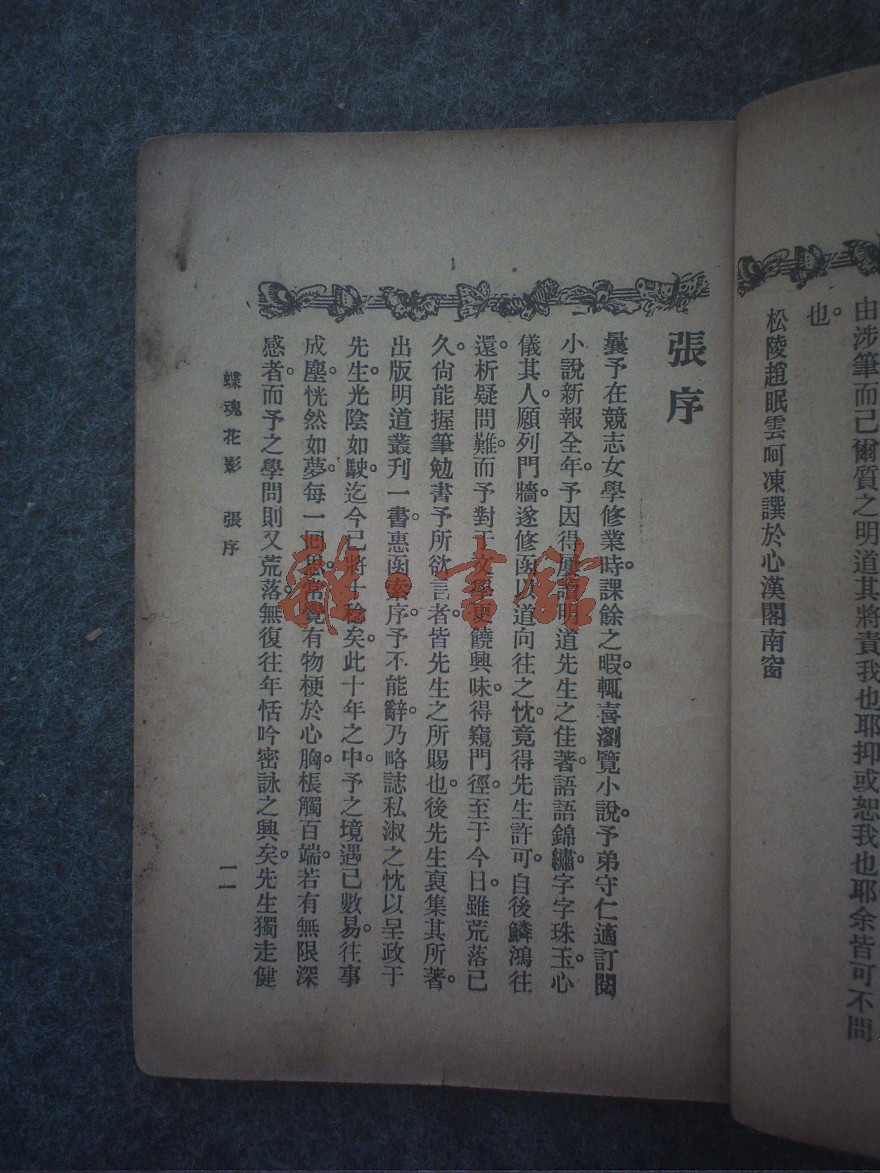 由涉筆而已爾質之明道其將責我也耶抑或恕我也耶余皆可不問
也。
松陵趙眠雲呵凍譔於心漢閣南窗
張序
曩予在競志女學修業時課餘之暇。輒喜瀏覽小說。予弟守仁適訂閱
小說新報全年。予因得屢讀明道先生之佳著。語語錦繡。字字珠玉。心
儀其人。願列門牆。遂修函以道向往之忱。竟得先生許可。自後鱗鴻往
還。析疑問難。而予對于文學更饒興味。得窺門徑。至于今日。雖荒落已
久。尙能握筆勉書予所欲言者。皆先生之所賜也。後先生裒集其所著。
出版明道叢刊一書。惠函索序。予不能辭。乃略誌私淑之忱以呈政于
先生。光陰如駛。迄今已將十稔矣。此十年之中。予之境遇已數易。往事
成塵。恍然如夢。每一回思。常覺有物梗於心胸。棖觸百端。若有無限深
感者。而予之學問則又荒落。無復往年恬吟密詠之興矣。先生獨走健
蝶魂花影 張序
一一
雜·書館